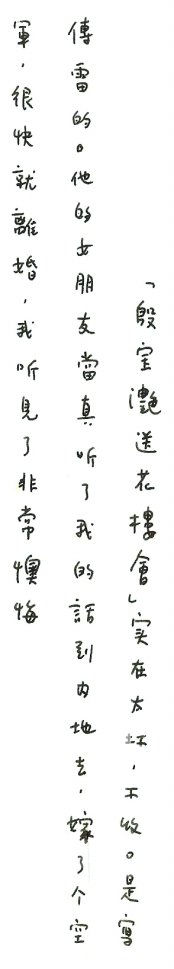 「殷宝灔送花樓會」实在太坏，不收。是寫
傅雷的。他的女朋友當真听了我的話到内地去，嫁了个空
軍，很快就離婚，我听見了非常懊悔